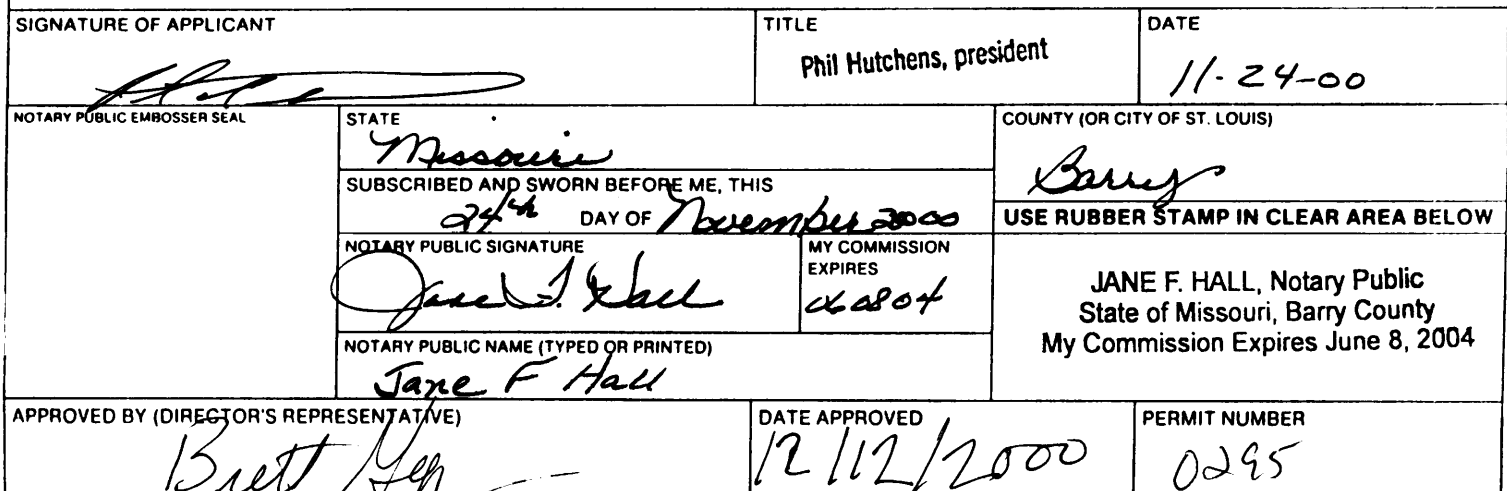 SIGNATURE OF APPLICANT
TITLE
DATE
Phil Hutchens, president
11-24-00
NOTARY PUBLIC EMBOSSER SEAL
STATE
Missouri
COUNTY (OR CITY OF ST. LOUIS)
Barry
SUBSCRIBED AND SWORN BEFORE ME, THIS
24th DAY OF November 2000
USE RUBBER STAMP IN CLEAR AREA BELOW
NOTARY PUBLIC SIGNATURE
Jane F. Hall
MY COMMISSION
EXPIRES
060804
JANE F. HALL, Notary Public
State of Missouri, Barry County
My Commission Expires June 8, 2004
NOTARY PUBLIC NAME (TYPED OR PRINTED)
Jane F Hall
APPROVED BY (DIRECTOR'S REPRESENTATIVE)
Brett
DATE APPROVED
12/12/2000
PERMIT NUMBER
0295